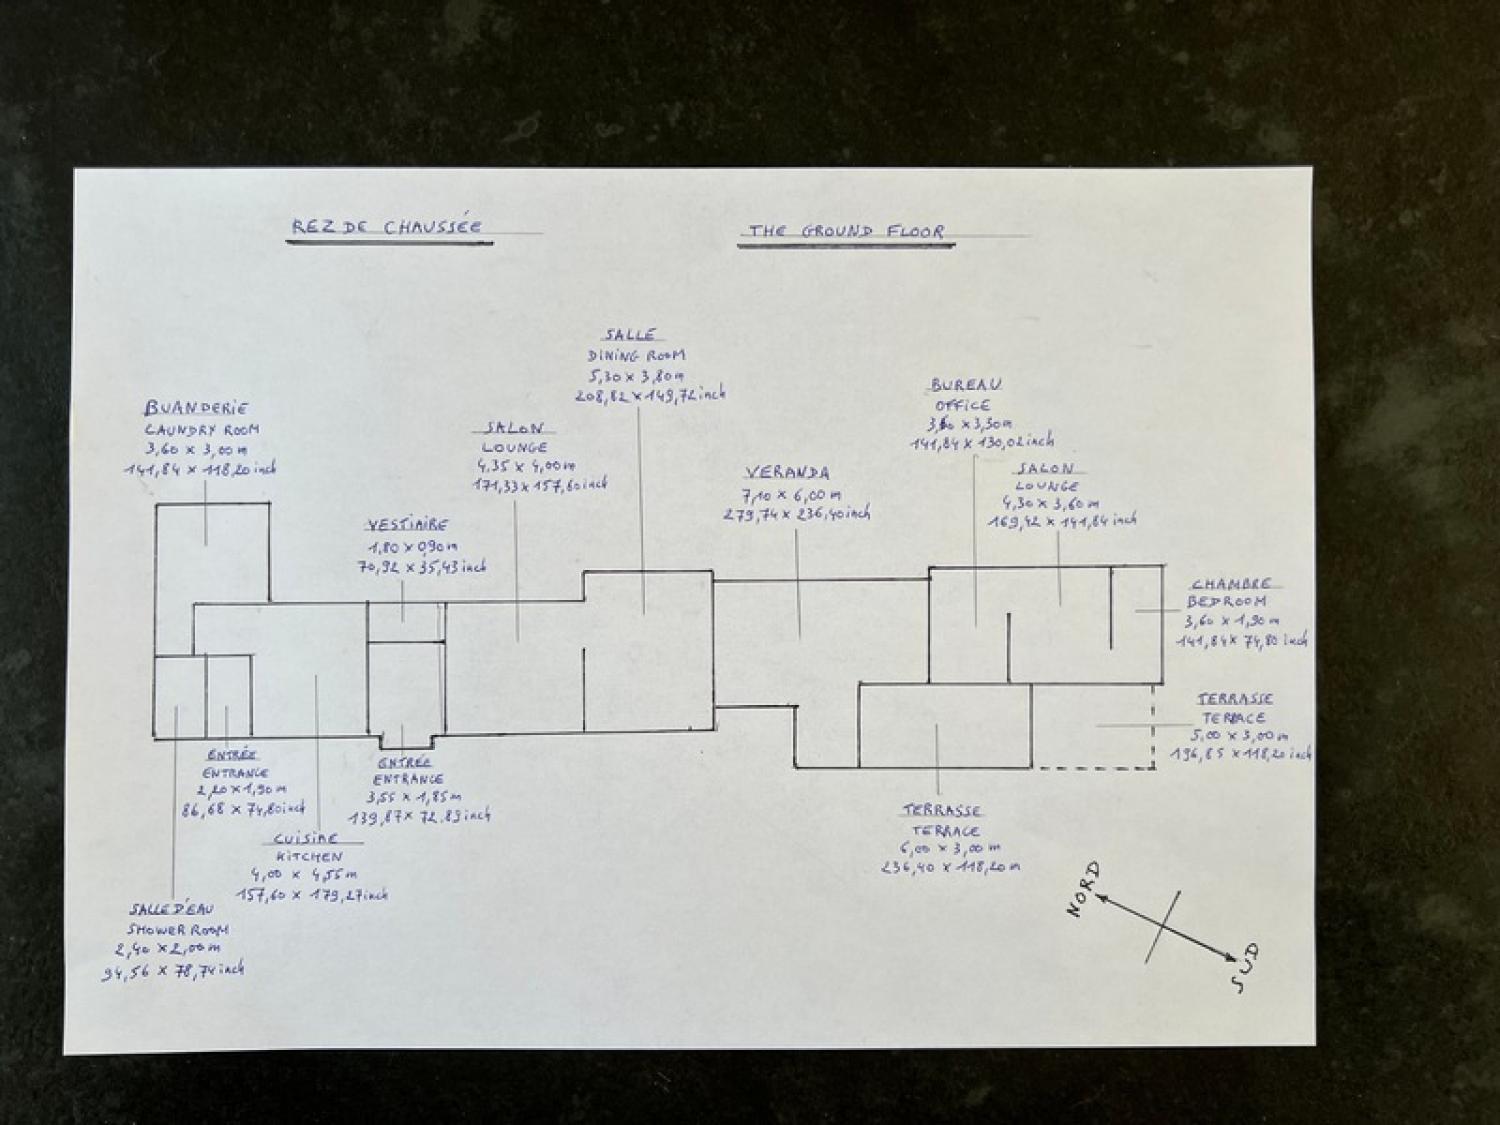 REZ DE CHAUSSÉE
THE GROUND FLOOR
SALLE
DINING ROOM
5,30 x 3,80m
208,82 x 149,72 inch
BUREAU
OFFICE
3,60 x 3,30m
141,84 x 130,02 inch
BUANDERIE
LAUNDRY ROOM
3,60 x 3,00m
141,84 x 118,20 inch
SALON
LOUNGE
4,35 x 4,00m
171,33 x 157,60 inch
VERANDA
7,10 x 6,00 m
279,74 x 236,40 inch
SALON
LOUNGE
4,30 x 3,60m
169,42 x 141,84 inch
VESTIAIRE
1,80 x 0,90m
70,92 x 35,43 inch
CHAMBRE
BEDROOM
3,60 x 1,90 m
141,84 x 74,80 inch
TERRASSE
TERRACE
5,00 x 3,00m
196,85 x 118,20 inch
ENTRÉE
ENTRANCE
2,20 x 1,90m
86,68 x 74,80 inch
ENTRÉE
ENTRANCE
3,55 x 1,85m
139,87 x 72.89 inch
TERRASSE
TERRACE
6,00 x 3,00 m
236,40 x 118,20 m
CUISINE
KITCHEN
4,00 x 4,55m
157,60 x 179,27 inch
SALLE D'EAU
SHOWER ROOM
2,40 x 2,00m
94,56 x 78,74 inch
NORD
SUD